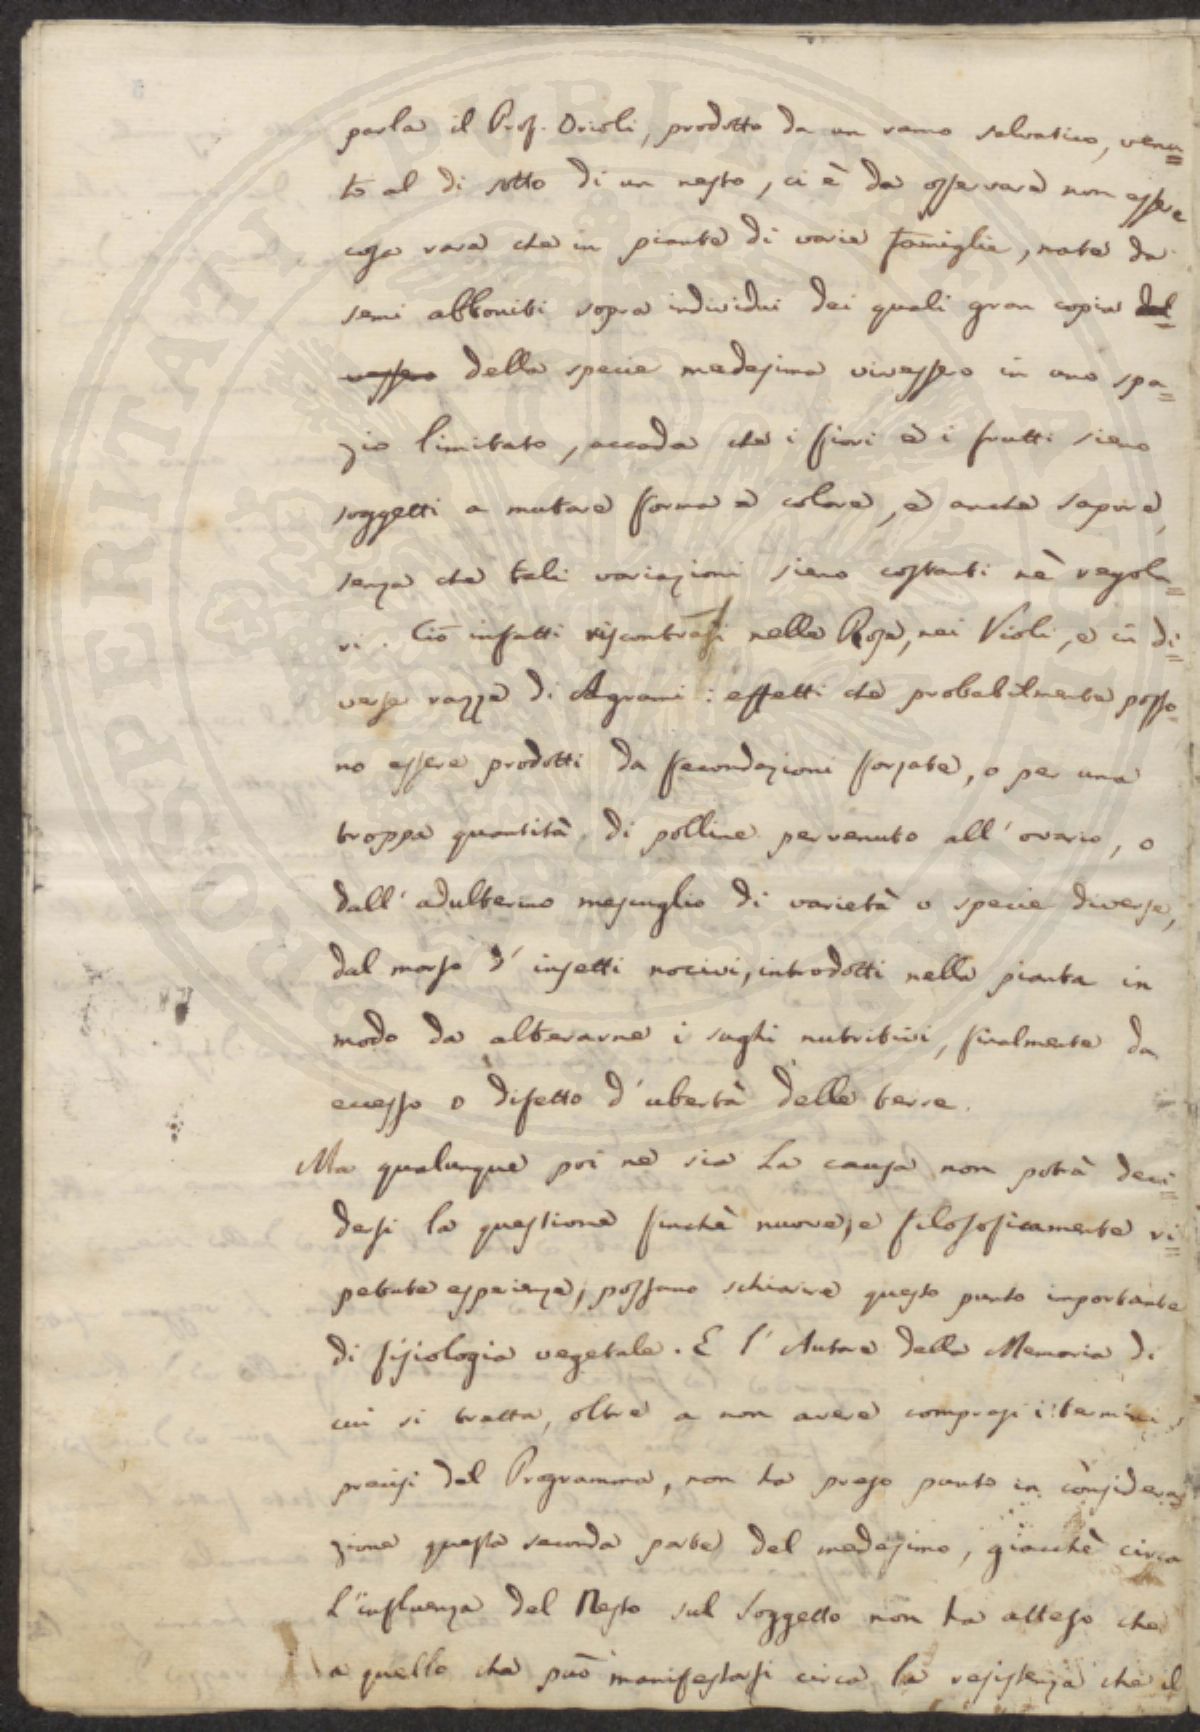 parla il Prof. Orioli, prodotto da un ramo salvatico, venu=
to al di sotto di un nesto, ci è da osservare non essere
cosa rara che in piante di varie famiglie, nate da
semi abboniti sopra individui dei quali gran copia dal=
vessero della specie medesima vivessero in uno spa=
zio limitato, accada che i fiori e i frutti sieno
soggetti a mutare forma e colore, e anche sapore,
senza che tali variazioni sieno costanti nè regola=
ri. Ciò infatti riscontrasi nelle Rose, nei Violi, e in di=
verse razze di Agrumi: effetti che probabilmente posso=
no essere prodotti da fecondazioni forzate, o per una
troppa quantità di polline pervenuto all'ovario, o
dall'adulterino mescuglio di varietà o specie diverse,
dal morso d'insetti nocivi, introdotti nella pianta in
modo da alterarne i sughi nutritivi, finalmente da
eccesso o difetto d'ubertà delle terre.
Ma qualunque poi ne sia la causa non potrà deci=
dersi la questione finchè nuove, e filosoficamente ri=
petute esperienze, possano schiarire questo punto importante
di fisiologia vegetale. E l'Autore della Memoria di
cui si tratta, oltre a non avere compresi i termini
precisi del Programma, non ha preso punto in considera
zione questa seconda parte del medesimo, giacchè circa
l'influenza del Nesto sul Soggetto non ha atteso che
a quello che può manifestarsi circa la resistenza che il
PROSPERITATI PUBLICAE